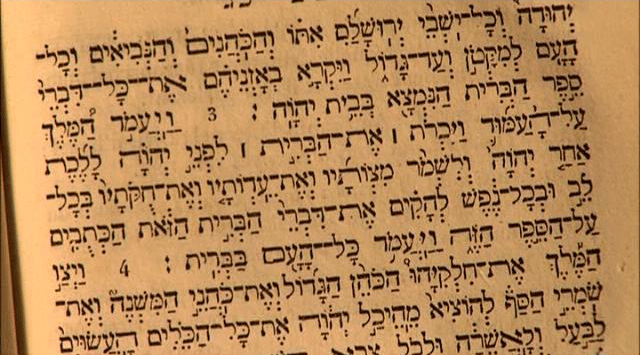 יְהוּדָה וְכָל־יֹשְׁבֵי יְרוּשָׁלִַם אִתּוֹ וְהַכֹּהֲנִים וְהַנְּבִיאִים וְכָל־
הָעָם לְמִקָּטֹן וְעַד־גָּדוֹל וַיִּקְרָא בְאָזְנֵיהֶם אֶת־כָּל־דִּבְרֵי
סֵפֶר הַבְּרִית הַנִּמְצָא בְּבֵית יְהוָה׃ 3 וַיַּעֲמֹד הַמֶּלֶךְ
עַל־הָעַמּוּד וַיִּכְרֹת ׀ אֶת־הַבְּרִית ׀ לִפְנֵי יְהוָה לָלֶכֶת
אַחַר יְהוָה וְלִשְׁמֹר מִצְוֹתָיו וְאֶת־עֵדְוֹתָיו וְאֶת־חֻקֹּתָיו בְּכָל־
לֵב וּבְכָל־נֶפֶשׁ לְהָקִים אֶת־דִּבְרֵי הַבְּרִית הַזֹּאת הַכְּתֻבִים
עַל־הַסֵּפֶר הַזֶּה וַיַּעֲמֹד כָּל־הָעָם בַּבְּרִית׃ 4 וַיְצַו
הַמֶּלֶךְ אֶת־חִלְקִיָּהוּ הַכֹּהֵן הַגָּדוֹל וְאֶת־כֹּהֲנֵי הַמִּשְׁנֶה וְאֶת־
שֹׁמְרֵי הַסַּף לְהוֹצִיא מֵהֵיכַל יְהוָה אֵת כָּל־הַכֵּלִים הָעֲשׂוּיִם
לַבַּעַל וְלָאֲשֵׁרָה וּלְכֹל צְבָא